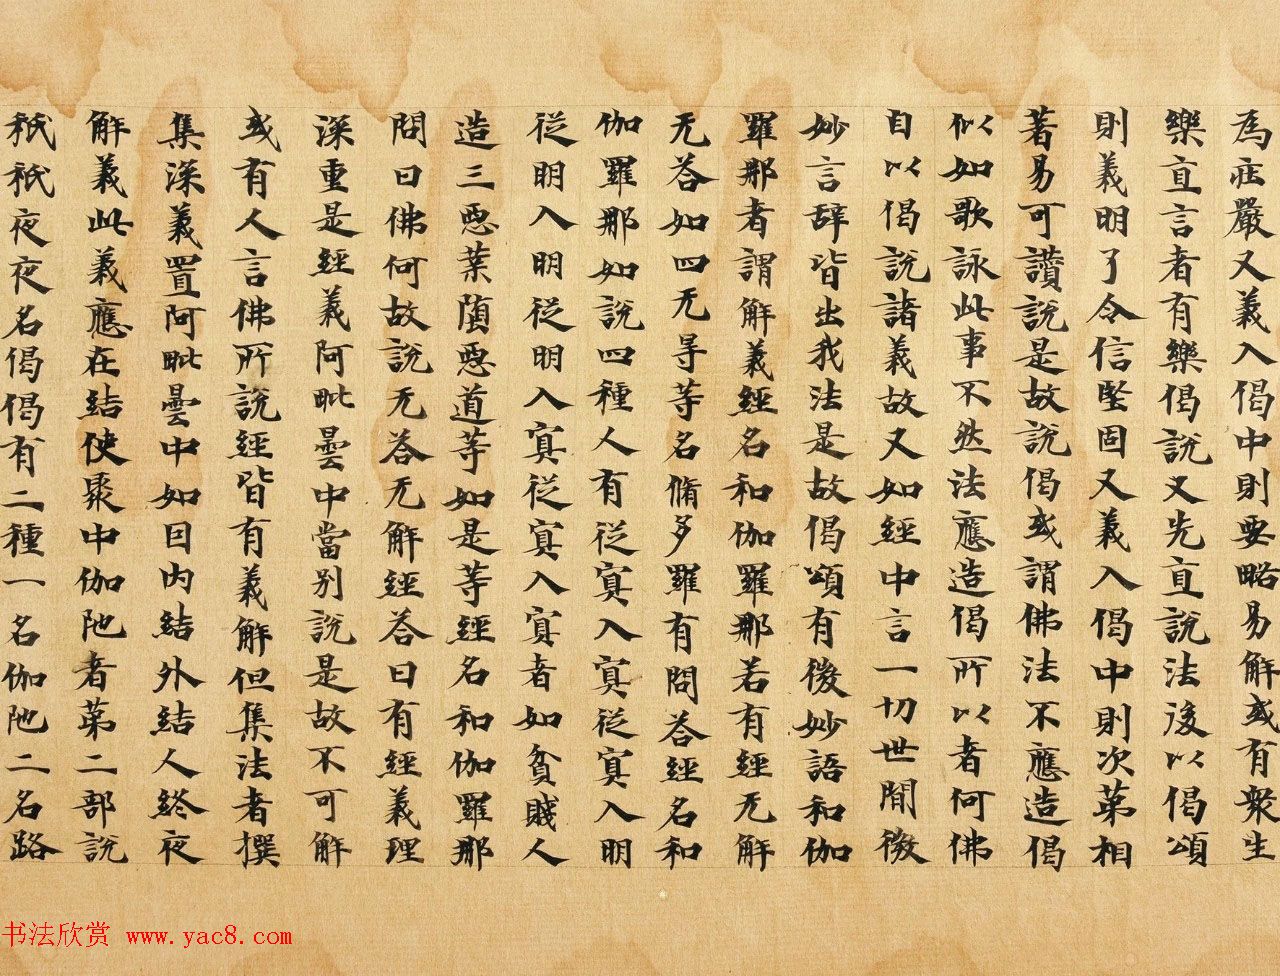 為庄嚴又義入偈中則要略易解或有衆生
樂直言者有樂偈說又先直說法後以偈頌
則義明了令信堅固又義入偈中則次第相
著易可讚說是故說偈或謂佛法不應造偈
似如歌詠此事不然法應造偈所以者何佛
自以偈說諸義故又如經中言一切世間微
妙言辭皆出我法是故偈頌有微妙語和伽
羅那者謂解義經名和伽羅那若有經无解
无荅如四无导等名脩多羅有問荅經名和
伽羅那如說四種人有從冥入冥從冥入明
從明入明從明入冥從冥入冥者如貧賤人
造三惡業墮惡道等如是等經名和伽羅那
問曰佛何故說无荅无解經荅曰有經義理
深重是經義阿毗曇中當別說是故不可解
或有人言佛所說經皆有義解但集法者撰
集深義置阿毗曇中如因內結外結人終夜
解義此義應在結使聚中伽陁者第二部說
祇祇夜夜名偈偈有二種一名伽陁二名路
书法欣赏 www.yac8.com